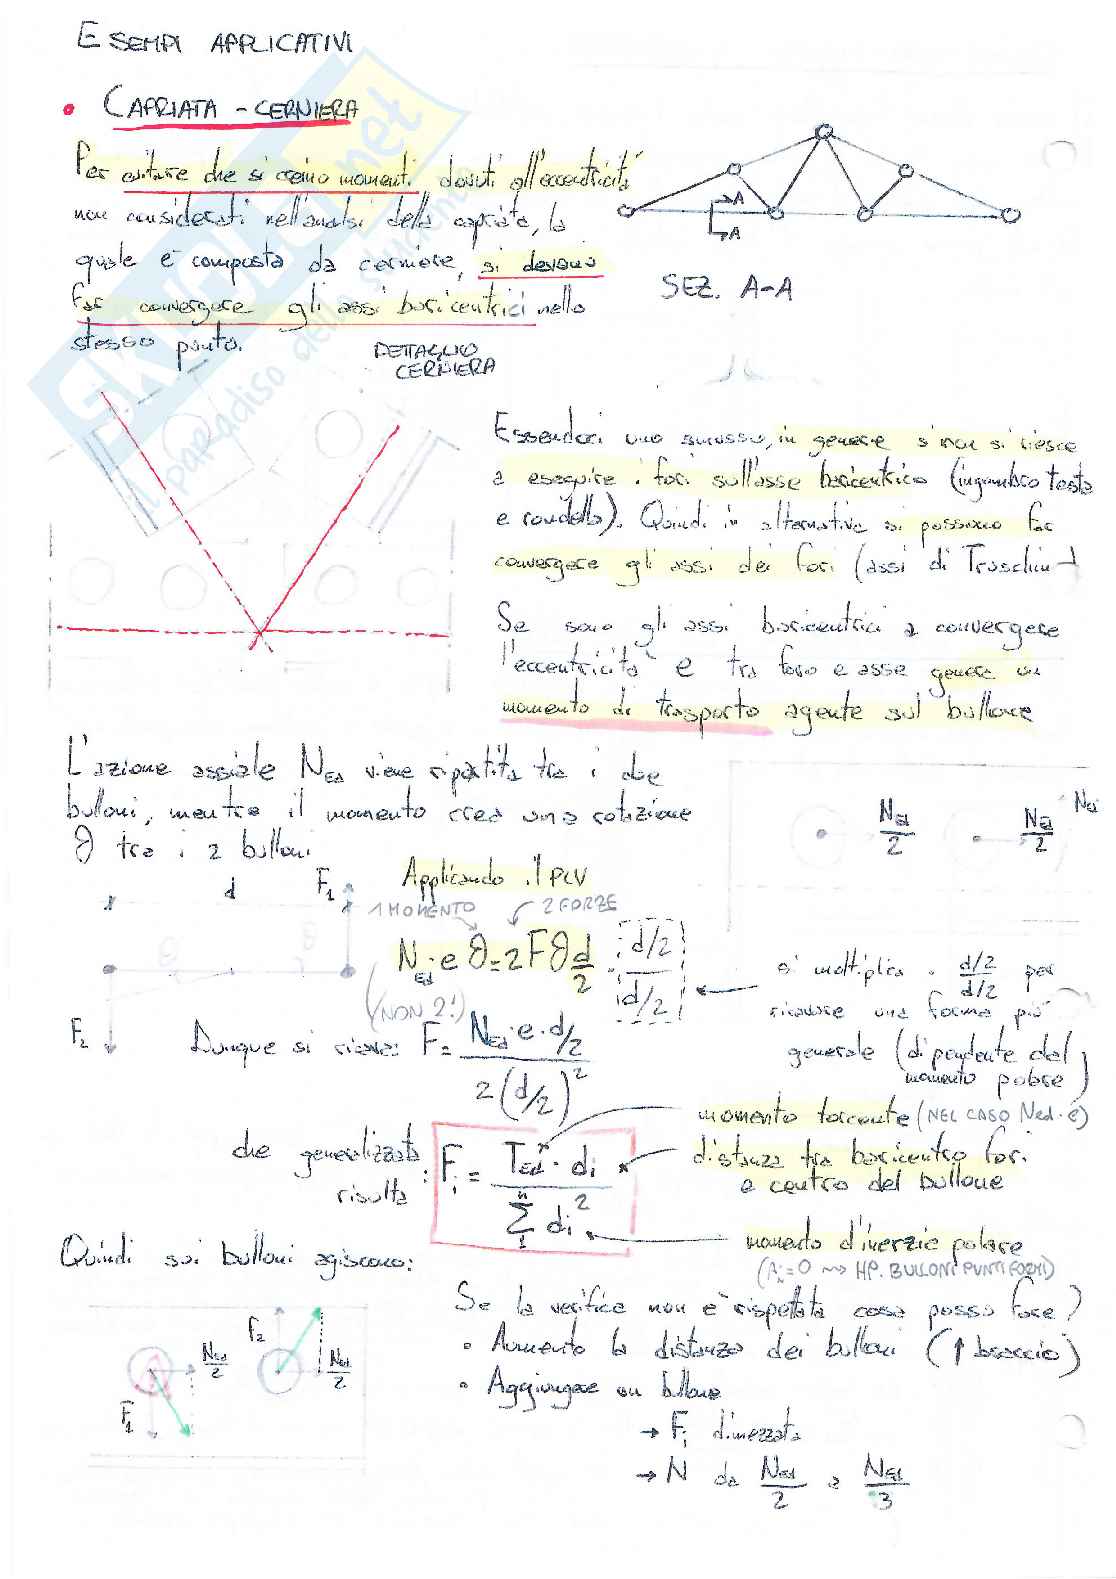 ESEMPI APPLICATIVI
• CAPRIATA - CERNIERA
Per evitare che si creino momenti dovuti all'eccentricità
non considerati nell'analisi della capriata, la
quale è composta da cerniere, si devono
far convergere gli assi baricentrici nello
stesso punto.
A
A
SEZ. A-A
DETTAGLIO
CERNIERA
Essendoci uno smusso, in genere non si riesce
a eseguire i fori sull'asse baricentrico (ingombro testa
e rondella). Quindi in alternativa si possono far
convergere gli assi dei fori (assi di
Se sono gli assi baricentrici a convergere
l'eccentricità è tra foro e asse genera un
momento di trasporto agente sul bullone
L'azione assiale NEd viene ripartita tra i due
bulloni, mentre il momento crea una rotazione
θ tra i 2 bulloni
NEd/2
NEd/2
NEd
d
F1
F2
θ
θ
Applicando il PLV
1 MOMENTO
2 FORZE
NEd·e θ=2Fθ d/2 · (d/2)/(d/2)
(NON 2!)
si moltiplica · (d/2)/(d/2) per
ricavare una forma più
generale (dipendente dal
momento polare)
Dunque si ricava: F = NEd·e·d/2 / 2(d/2)²
momento torcente (NEL CASO Ned·e)
che generalizzata
risulta: Fi = TEd · di / Σ di²
distanza tra baricentro fori
e centro del bullone
momento d'inerzia polare
(Ai=0 ⇝ HP. BULLONI PUNTIFORMI)
Quindi sui bulloni agiscono:
F1
NEd/2
F2
NEd/2
Se la verifica non è rispettata cosa posso fare?
• Aumento la distanza dei bulloni (↑ braccio)
• Aggiungere un bullone
→ Fi dimezzata
→ N da NEd/2 a NEd/3
SKUOLA.net
il paradiso dello studente